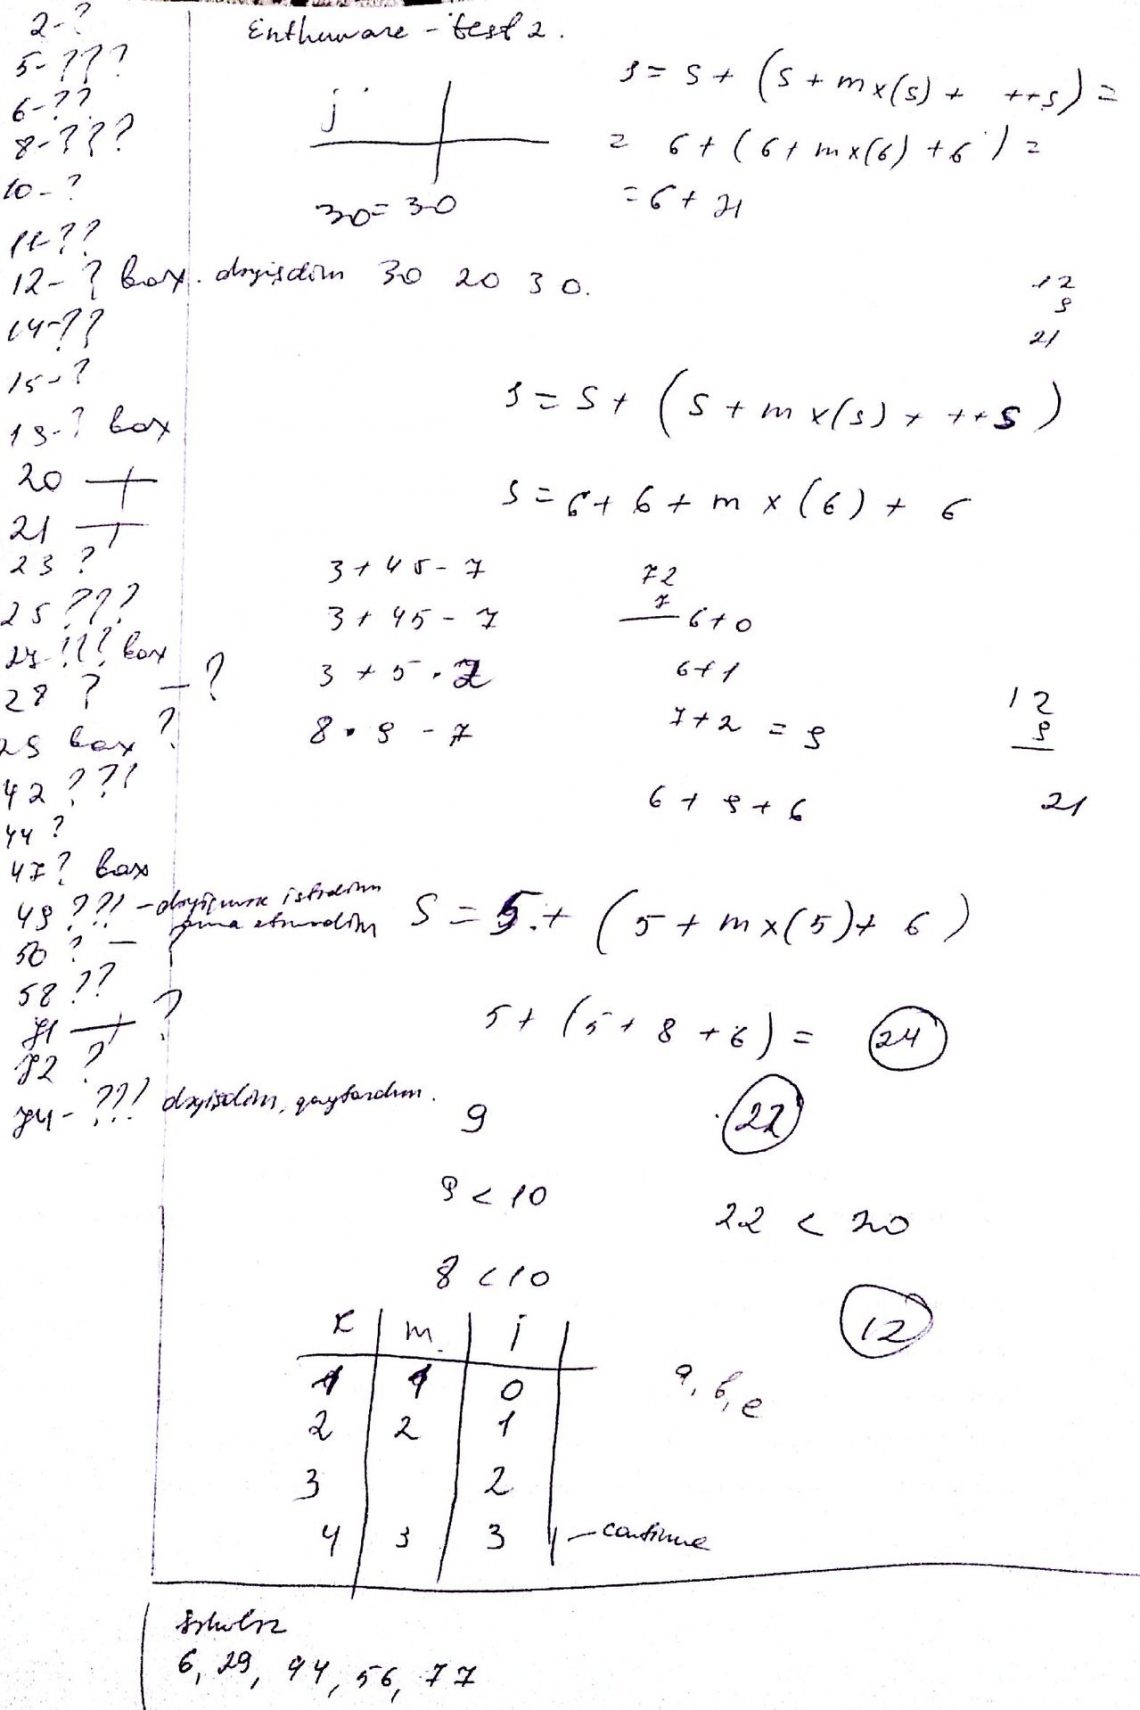 Enthuware - test 2.
2-?
5-???
6-??
8-???
10-?
11-??
12-? bax. dəyişdim 30 20 30.
14-??
15-?
19-? bax
20 —+
21 —+
23 ?
25 ???
27-!!? bax
28 ? —?
29 bax ?
42 ???
44 ?
47? bax
49 ??? - dəyişmək istədim
amma etmədim
50 ? —
58 ??
71 —+ ?
72 ?
74- ??? dəyişdim, qaytardım.
j
30=30
s = s + (s + mx(s) + ++s) =
= 6 + (6 + mx(6) + 6) =
= 6 + 21
12
9
21
s = s + (s + mx(s) + ++s)
s = 6 + 6 + mx(6) + 6
3 + 45 - 7
3 + 45 - 7
3 + 5 . 7
8 . 9 - 7
72
7
6+0
6+1
7+2 = 9
6 + 9 + 6
12
9
21
S = 5 + (5 + mx(5) + 6)
5 + (5 + 8 + 6) = 24
9 22
9 < 10
22 < 20
8 < 10
12
k m j
1 1 0
2 2 1
3 2
4 3 3 - continue
a, b, e
6, 29, 44, 56, 77